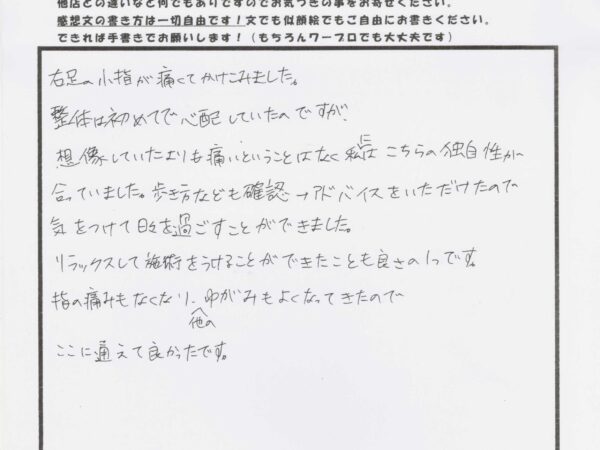 他店との違いなど何でもありですのでお気づきの事をお寄せください。
感想文の書き方は一切自由です！文でも似顔絵でもご自由にお書きください。
できれば手書きでお願いします！（もちろんワープロでも大丈夫です）
右足の小指が痛くてかけこみました。
整体は初めてで心配していたのですが、
想像していたよりも痛いということはなく私にはこちらの独自性が
合っていました。歩き方なども確認→アドバイスをいただけたので
気をつけて日々を過ごすことができました。
リラックスして施術をうけることができたことも良さの1つです。
指の痛みもなくなり、他のゆがみもよくなってきたので
ここに通えて良かったです。